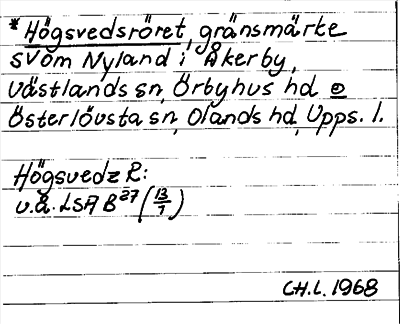 *Högsvedsröret, gränsmärke
svom Nyland i Åkerby,
Västlands sn, Örbyhus hd o
Österlövsta sn, Olands hd, Upps. l.
Högsvedz R:
u.å. LSA B27 (13/7)
CH.L. 1968